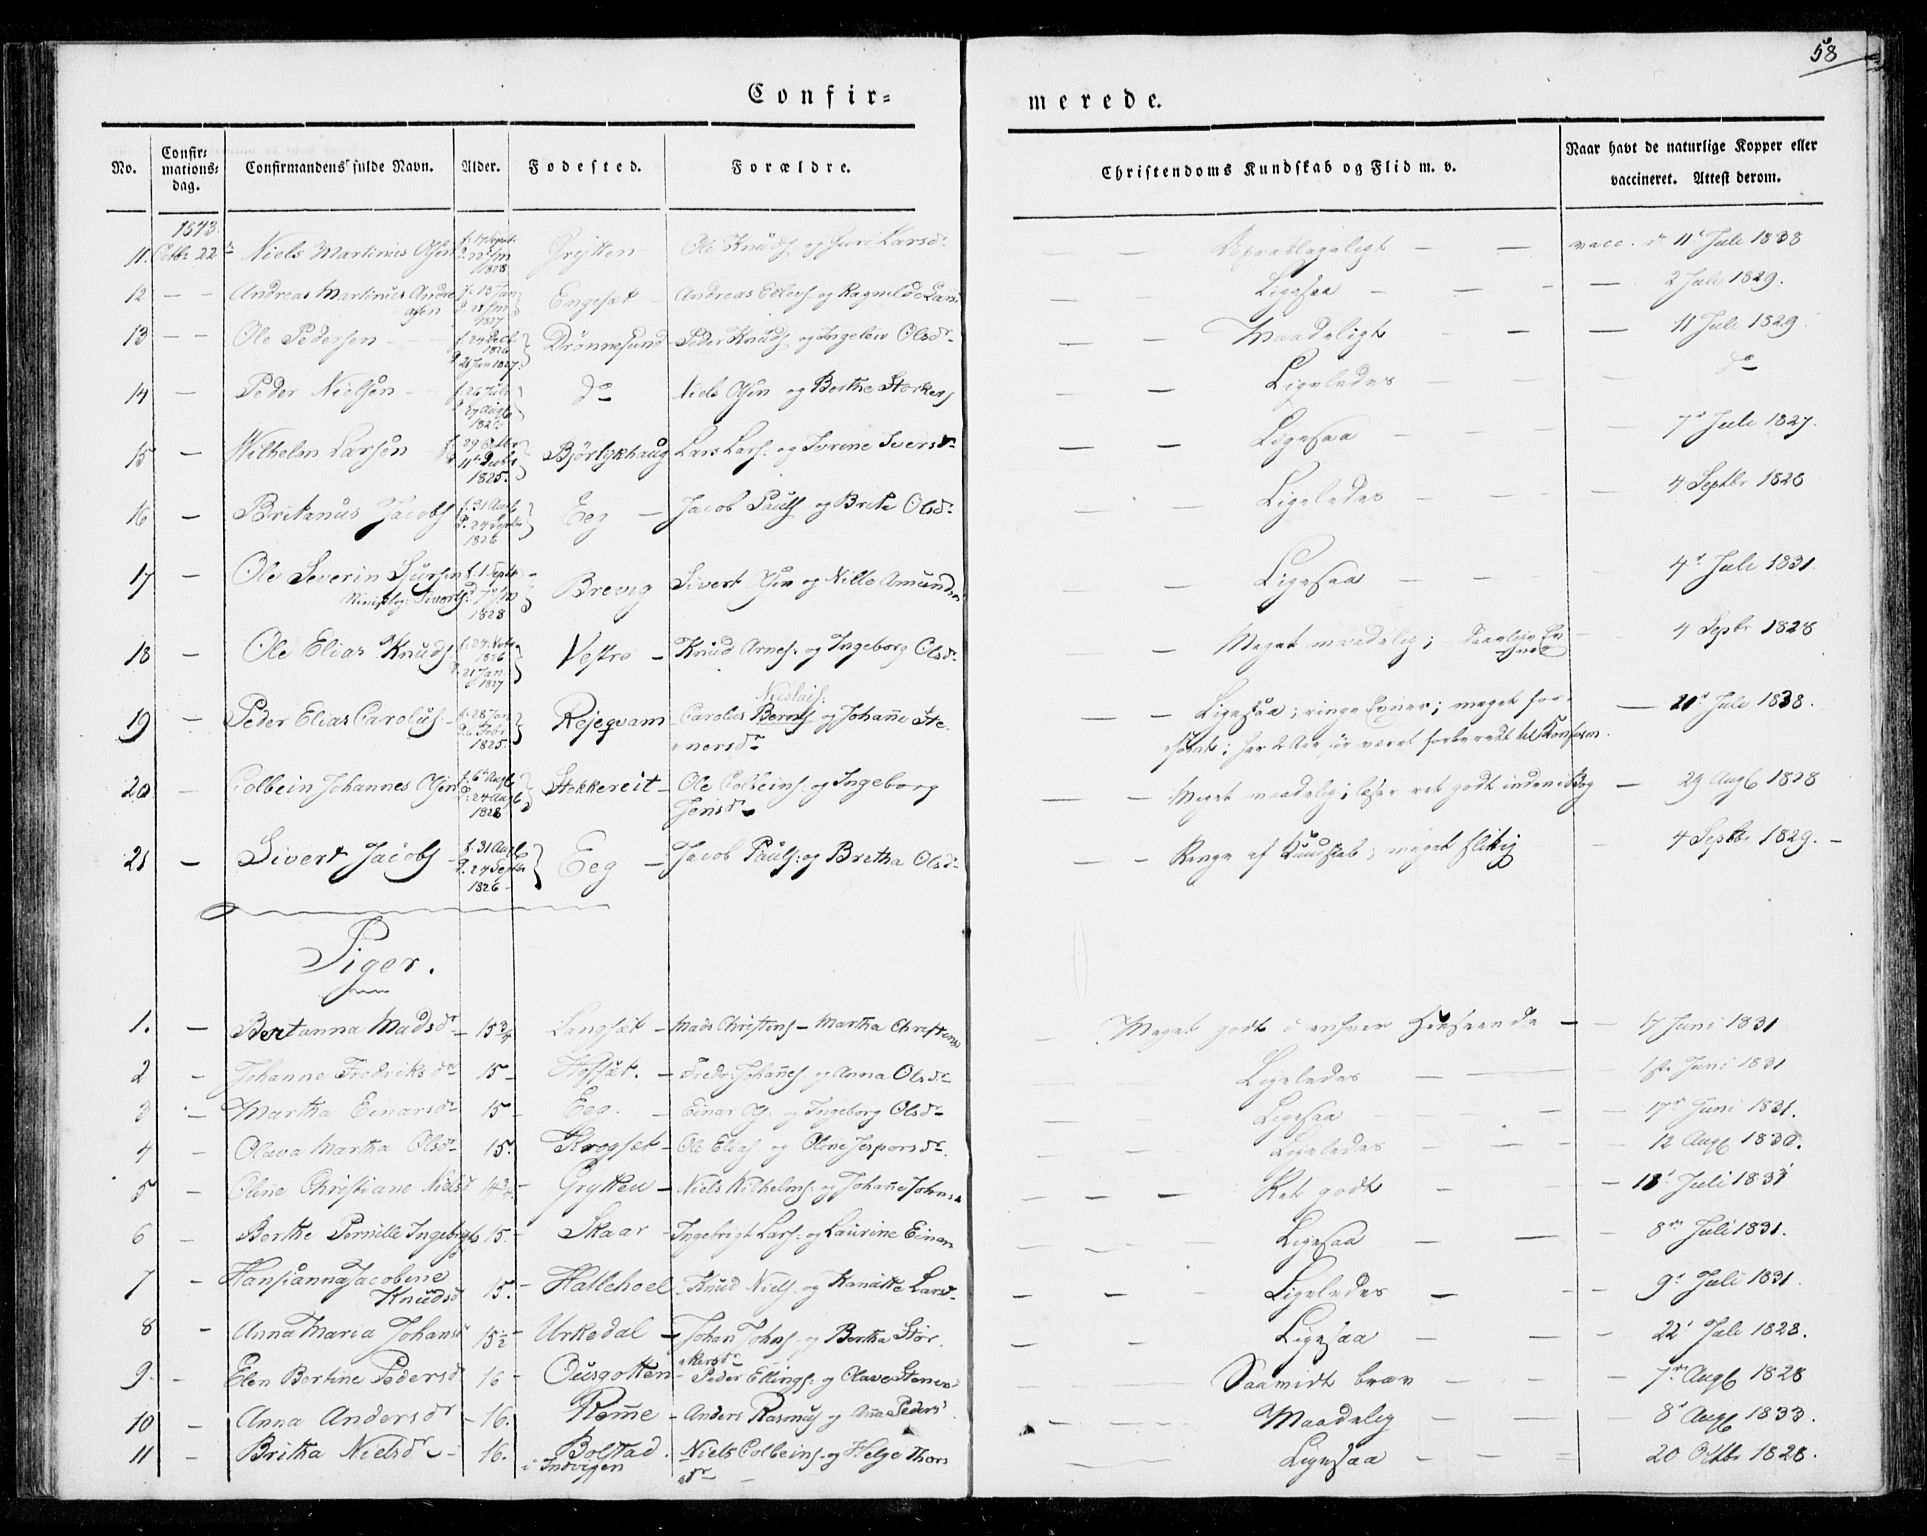 58
Confir=
merede.
No. Confir= mations= dag. Confirmandens fulde Navn. Alder. Fødested. Forældre. Christendoms Kundskab og Flid m. v. Naar havt de naturlige Kopper eller vaccineret. Attest derom.
1843
11. Octbr 22 Niels Martinus Olsen 1828 Grytten Ole Knuds og Guri Larsdr — — vacc. d 11 Juli 1838
12 — — Andreas Martinus Andreasen f. 13 Jan 1827 Engeset Andreas Ellevs og Ragnilde Lars — Ligesaa — — 2 Juli 1829.
13 — — Ole Pedersen f. 24 Decb 1826 d. 21 Jan 1827. Drønnesund Peder Knuds og Ingelev Olsdr — Maadeligt — — 11 Juli 1829
14 — Peder Nielsen f. 26 Juli d. 27 Augb 1826 do Niels Olsen og Berthe Storkers — Ligeledes — do
15 — Wilhelm Larsen f. 29 Octbr 1825. Bjørlykhaug Lars Lars. og Syrine Iversdr — Ligesaa — 7d Juli 1827.
16 — Britanus Jacobs f. 31 Augb d. 24 Septbr 1826 Eeg — Jacob Pauls og Brita Olsdr — Ligeledes — 4 Septbr 1828
17 — Ole Severin Sjursen Siverts f. 1 Septb 1828 Brevig Sivert Olsen og Nille Amunds — Ligesaa — 4d Juli 1831.
18 — Ole Elias Knuds 1826 d. 21 Jan 1827 Vestre — Knud Arnes. og Ingeborg Olsdr — Meget maadelig; daarlige Evner — 4 Septbr 1828
19 — Peder Elias Carolus f. 28 Jan d. 6 Febr 1825. Rejeqvam Carolus Bernts Nicolais: og Johanne Stenersdr — Ligesaa; ringe Evner; meget forsømt; har 2 Aar før været forberedt til Konfirm. — 21d Juli 1838.
20 — Colbein Johannes Olsen f. 6 Augb d. 24 Augb 1828 Stokkereit — Ole Colbeins. og Ingeborg Jensdr — Meget maadelig; læser ret godt inden i Bog — 29 Augb 1828
21 — Sivert Jacobs f. 31 Augb d. 24 Septbr 1826 Eeg — Jacob Pauls. og Bretha Olsdr — Ringe af Kundskab; meget flittig — 4 Septbr 1829.
Piger.
1. — Bertanna Madsdr 15 3/4 Langset — Mads Christens — Martha Christensd — Meget godt i enhver Henseende — 17 Juni 1831
2 — Johanne Fredriksdr 15 — Hofset. — Fredr. Johannes og Anna Olsdr Ligeledes — 1ste Juni 1831
3 — Martha Einarsdr 15 — Eeg. — Einar Ols. og Ingeborg Olsdr Ligesaa — 17d Juni 1831.
4 — Olava Martha Olsdr 15. Krogset — Ole Elias og Oline Jespersdr. Ligeledes — 12 Augb 1830.
5 — Oline Christiane Nielsd 14 3/4 — Grytten — Niels Vilhelms. og Johanne Johns — Ret godt — 18d Juli 1831
6 — Berthe Pernille Ingebrigts 15. Skaar — Ingebrigt Lars. og Laurine Einar — Ligesaa — 8d Juli 1831.
7 — Hansianna Jacobine Knudsd 15. — Hallehoel Knud Niels. og Larsdr — Ligeledes — 9d Juli 1831.
8 — Anna Maria Johansd 15 1/2 — Urkedal — Johan Johns. og Bertha Storkersdr — Ligesaa — 22d Juli 1828.
9 — Elen Bertine Pedersd 16 — Ousgotten — Peder Ellings. og Olave Stenersd — Saavidt brav — 7de Augb 1828
10 — Anna Andersdr — 16. Rømme — Anders Rasmus og Anna Peders. — Maadelig — 8d Augb 1833.
11 — Britha Nielsdr — 16. Bolstad i Indvigen Niels Colbeins. og Helge Thors dr — Ligesaa — 20 Octbr 1828.